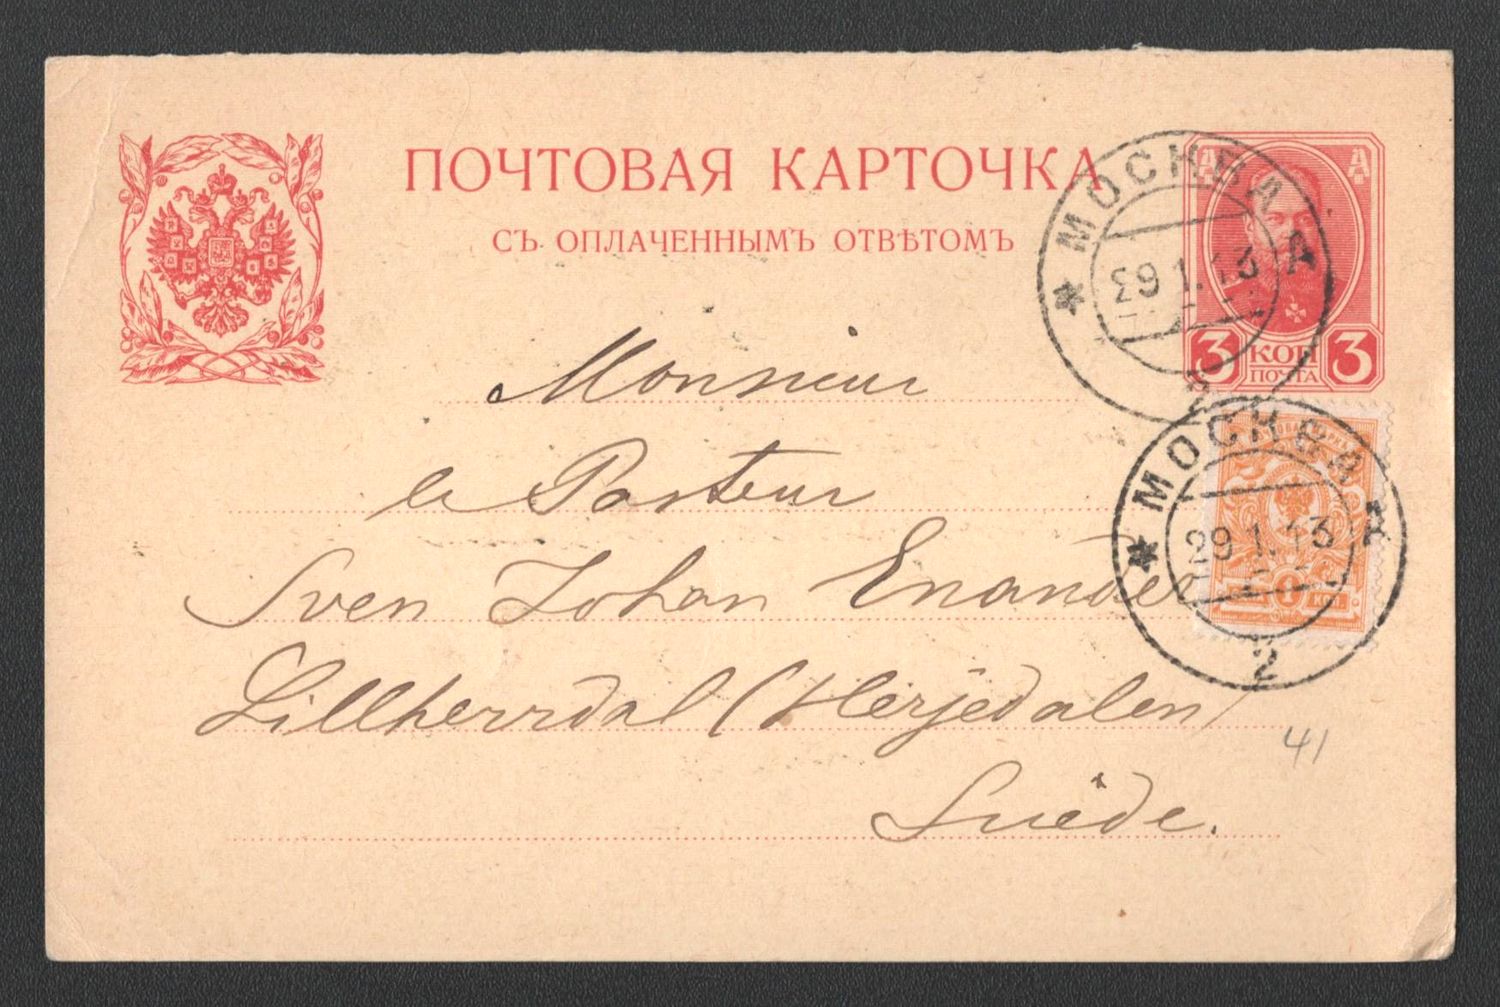 ПОЧТОВАЯ КАРТОЧКА
СЪ ОПЛАЧЕННЫМЪ ОТВѢТОМЪ
МОСКВА
29.1.13
А
3 КОП 3
ПОЧТА
МОСКВА
29.1.13
А
2
1
Monsieur
le Pasteur
Sven Johan Enander
Lillherrdal (Herjedalen)
Suède.
41